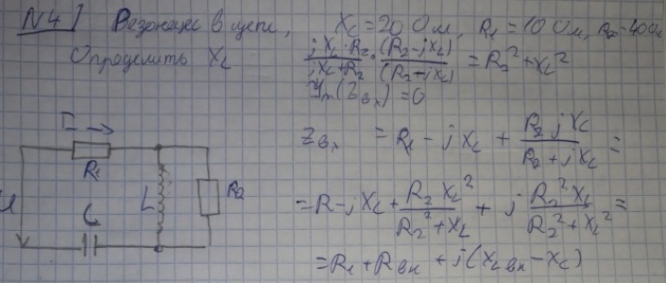 N4] Резонанс в цепи, Xc=20 Ом, R1=10 Ом, R2=40 Ом
Определить XL
jXL·R2/(jXL+R2) · (R2-jXL)/(R2-jXL) = R2²+XL²
Im(Zвх)=0
I →
R1
L
R2
C
Zвх = R1 - jXc + R2jXL/(R2+jXL) =
= R - jXc + R2XL²/(R2²+XL) + j R2²XL/(R2²+XL²) =
= R1 + Rвн + j(XLвн - Xc)